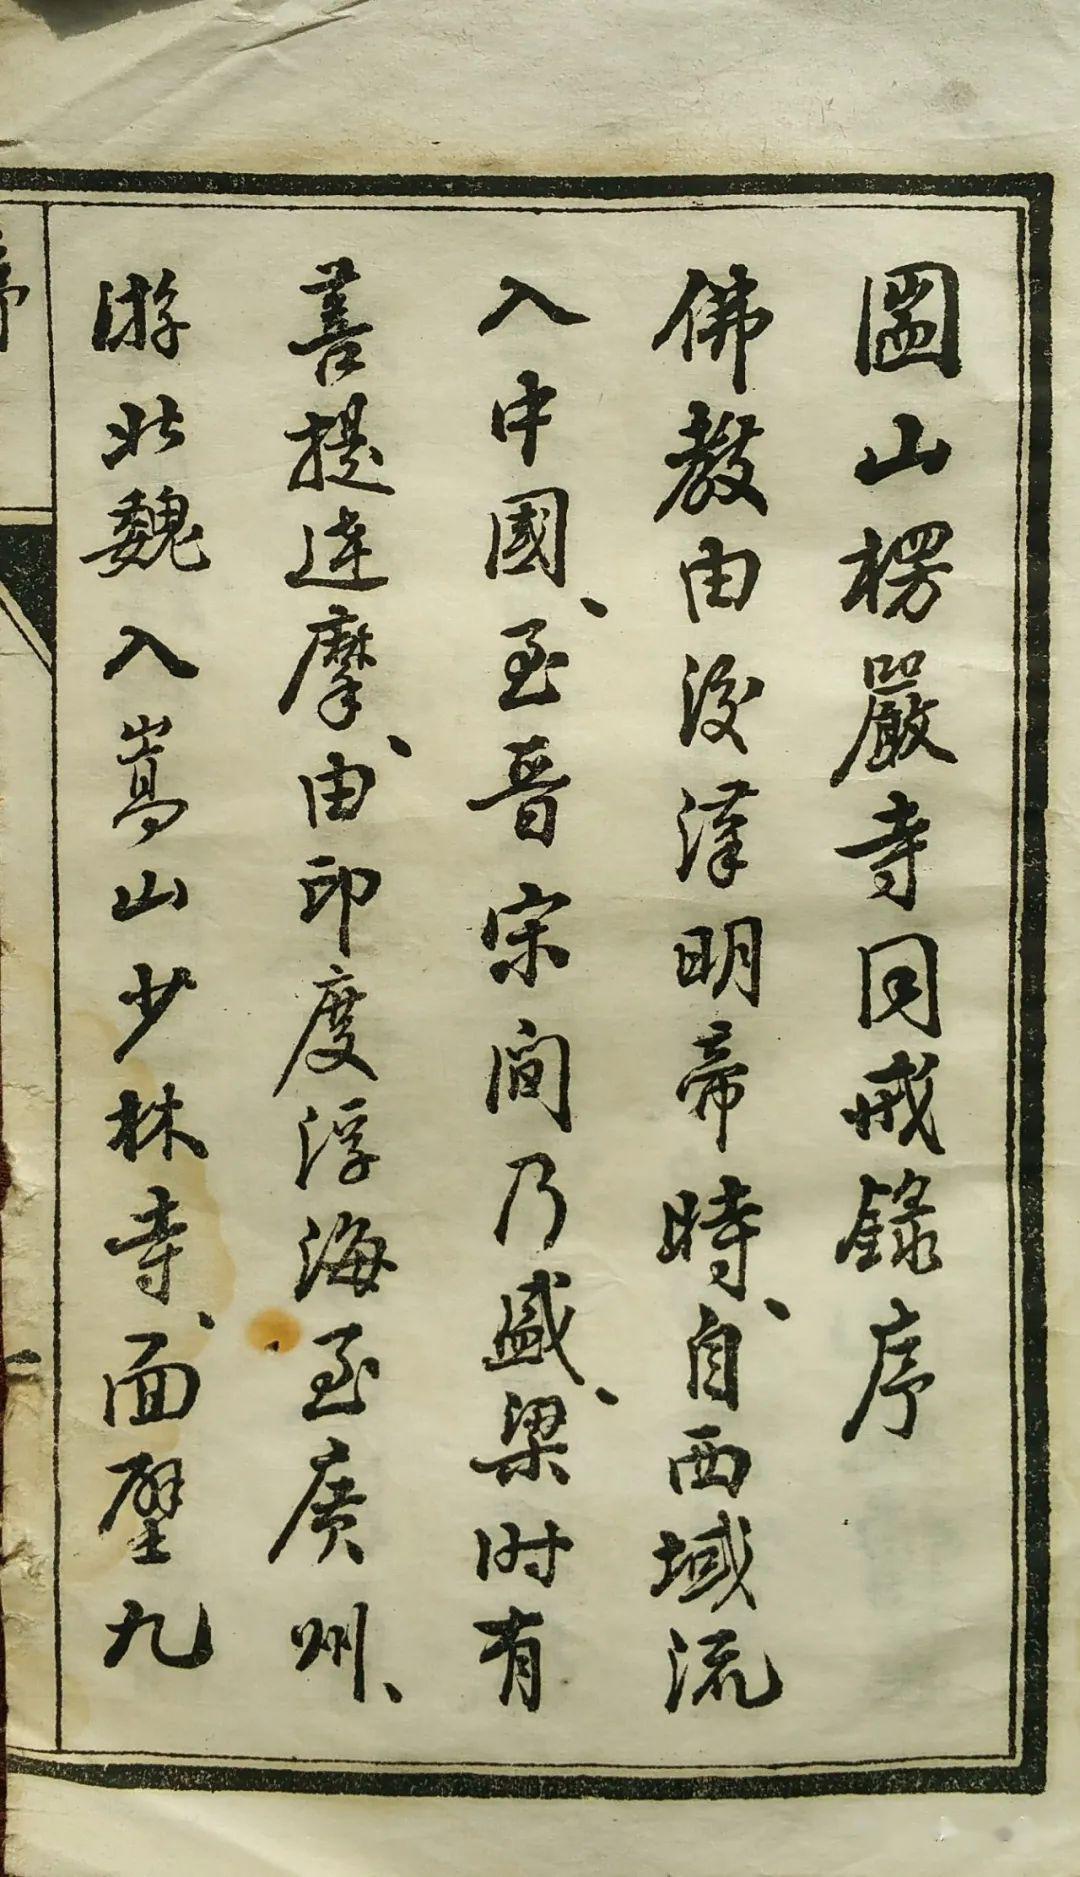 圌山楞嚴寺同戒錄序
佛教由後漢明帝時、自西域流
入中國、至晉宋間乃盛、梁时有
菩提達摩、由印度浮海至廣州、
游北魏入嵩山少林寺、面壁九